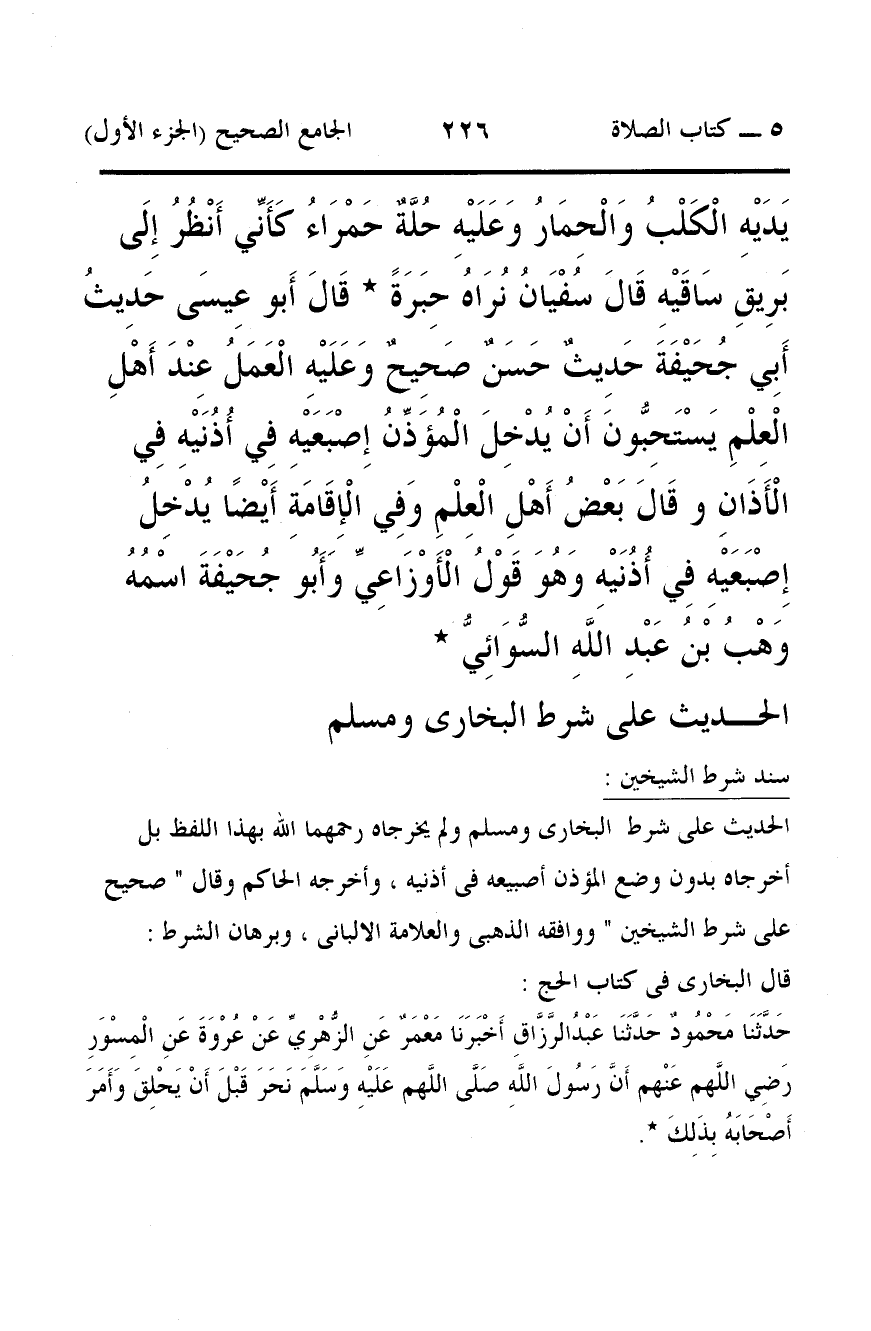 ٥ ــ كتاب الصلاة ٢٢٦ الجامع الصحيح (الجزء الأول)
يَدَيْهِ الْكَلْبُ وَالْحِمَارُ وَعَلَيْهِ حُلَّةٌ حَمْرَاءُ كَأَنِّي أَنْظُرُ إِلَى
بَرِيقِ سَاقَيْهِ قَالَ سُفْيَانُ نُرَاهُ حِبَرَةً * قَالَ أَبو عِيسَى حَدِيثُ
أَبِي جُحَيْفَةَ حَدِيثٌ حَسَنٌ صَحِيحٌ وَعَلَيْهِ الْعَمَلُ عِنْدَ أَهْلِ
الْعِلْمِ يَسْتَحِبُّونَ أَنْ يُدْخِلَ الْمُؤَذِّنُ إِصْبَعَيْهِ فِي أُذُنَيْهِ فِي
الْأَذَانِ و قَالَ بَعْضُ أَهْلِ الْعِلْمِ وَفِي الْإِقَامَةِ أَيْضًا يُدْخِلُ
إِصْبَعَيْهِ فِي أُذُنَيْهِ وَهُوَ قَوْلُ الْأَوْزَاعِيِّ وَأَبُو جُحَيْفَةَ اسْمُهُ
وَهْبُ بْنُ عَبْدِ اللَّهِ السُّوَائِيُّ *
الحـــديث على شرط البخارى ومسلم
سند شرط الشيخين :
الحديث على شرط البخارى ومسلم ولم يخرجاه رحمهما الله بهذا اللفظ بل
أخرجاه بدون وضع المؤذن أصبيعه فى أذنيه ، وأخرجه الحاكم وقال " صحيح
على شرط الشيخين " ووافقه الذهبى والعلامة الالبانى ، وبرهان الشرط :
قال البخارى فى كتاب الحج :
حَدَّثَنَا مَحْمُودٌ حَدَّثَنَا عَبْدُالرَّزَّاقِ أَخْبَرَنَا مَعْمَرٌ عَنِ الزُّهْرِيِّ عَنْ عُرْوَةَ عَنِ الْمِسْوَرِ
رَضِي اللَّهم عَنْهم أَنَّ رَسُولَ اللَّهِ صَلَّى اللَّهم عَلَيْهِ وَسَلَّمَ نَحَرَ قَبْلَ أَنْ يَحْلِقَ وَأَمَرَ
أَصْحَابَهُ بِذَلِكَ *.